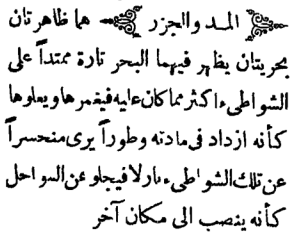 المد والجزر هما ظاهرتان
بحريتان يظهر فيهما البحر تارة ممتداً على
الشواطىء اكثر مما كان عليه فيغمرها ويعلوها
كأنه ازداد في مادته وطوراً يرى منحسراً
عن تلك الشواطىء نازلا فيجلو عن السواحل
كأنه ينصب الى مكان آخر